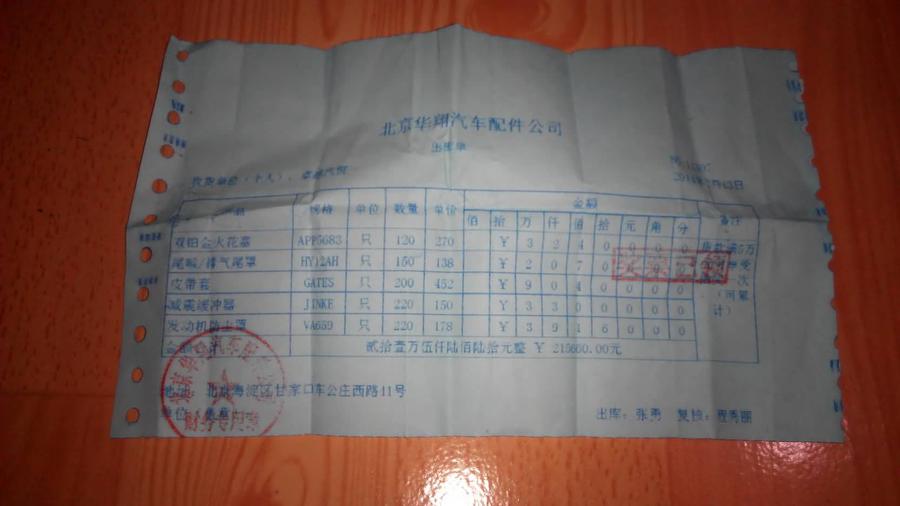 北京华翔汽车配件公司
出库单
收货单位(个人):
日
规格 单位 数量 单价 金额 备注
佰 拾 万 仟 佰 拾 元 角 分
双铂金火花塞 APP5683 只 120 270 ¥ 3 2 4 0 0 0 0
尾喉/排气尾罩 HY12AH 只 150 138 ¥ 2 0 7 0
皮带套 GATES 只 200 452 ¥ 9 0 4 0 0 0 0
减震缓冲器 JINKE 只 220 150 ¥ 3 3 0 0 0 0 0
发动机防土罩 VA659 只 220 178 ¥ 3 9 1 6 0 0 0
(可累
计)
贰拾壹万伍仟陆佰陆拾元整 ¥ 215660.00元
地址: 北京海淀区甘家口车公庄西路41号
单位:
财务专用章
出库: 张勇 复核: 程秀丽